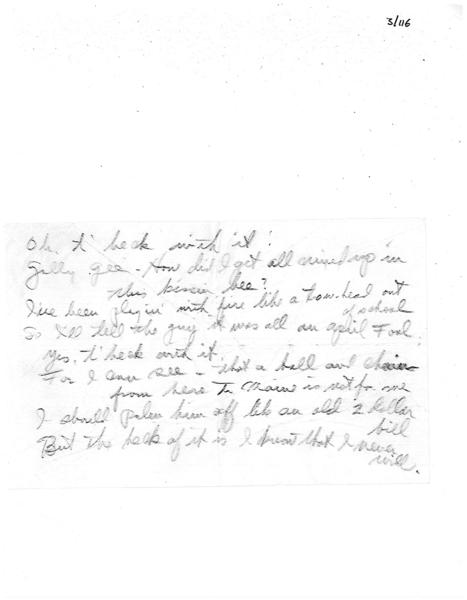 3/116
Oh, t' heck with it!
Golly gee - How did I get all mixed up in
this kissin bee?
I've been playin' with fire like a tow-head out
of school
So I'll tell the guy it was all an April Fool.
Yes, t' heck with it.
For I can see - that a ball and chain
from here to Maine is not for me
I should palm him off like an old 2 dollar
bill
But the heck of it is I know that I never
will.